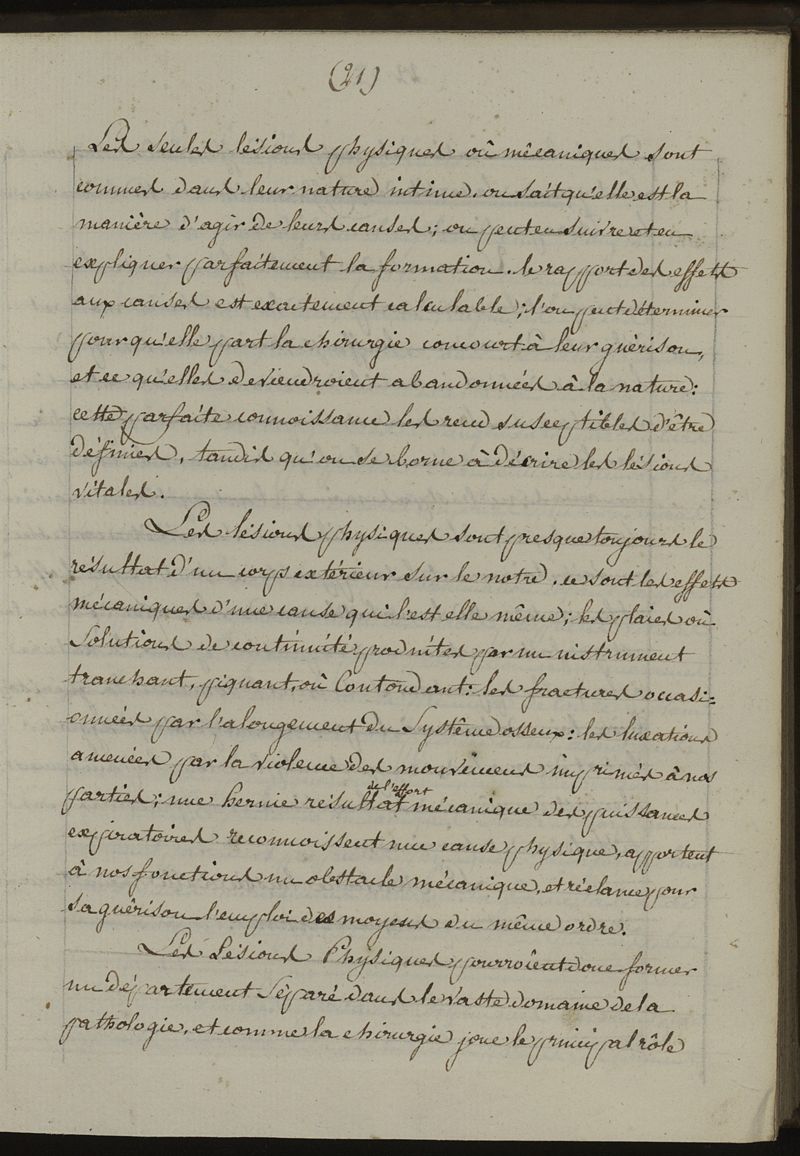 (21)
Les seules lésions physiques où mécaniques sont
connues dans leur nature intime. on sait qu'elle est la
manière d'agir de leurs causes; on peut en suivre et en
expliquer parfaitement la formation. le rapport des effets
aux causes est exactement calculable; l'on peut déterminer
pour qu'elle part la chirurgie concourt à leur guérison,
et ce qu'elles deviendroient abandonnées à la nature:
cette parfaite connoissance les rend susceptibles d'être
définies, tandis qu'on se borne à décrire les lésions
vitales.
Les lésions physiques sont presque toujours le
résultat d'un corps extérieur sur le notre. ce sont les effets
mécaniques d'une cause qui l'est elle même; les plaies où
Solutions de continuité produites par un instrument
tranchant, piquant, où Contondant: les fractures occasi=
onnées par l'alongement du Système osseux: les luxations
amenées par la violence des mouvemens imprimés à nos
parties; une hernie résultat de l'effort mécanique des puissances
expiratoires reconnoissent une cause physique, apportent
à nos fonctions un obstacle mécanique, et réclame pour
sa guérison l'emploi des moyens du même ordre.
Les Lésions Physiques pourroient donc former
un département Séparé dans le vaste domaine de la
pathologie, et comme la chirurgie joue le principal rôle